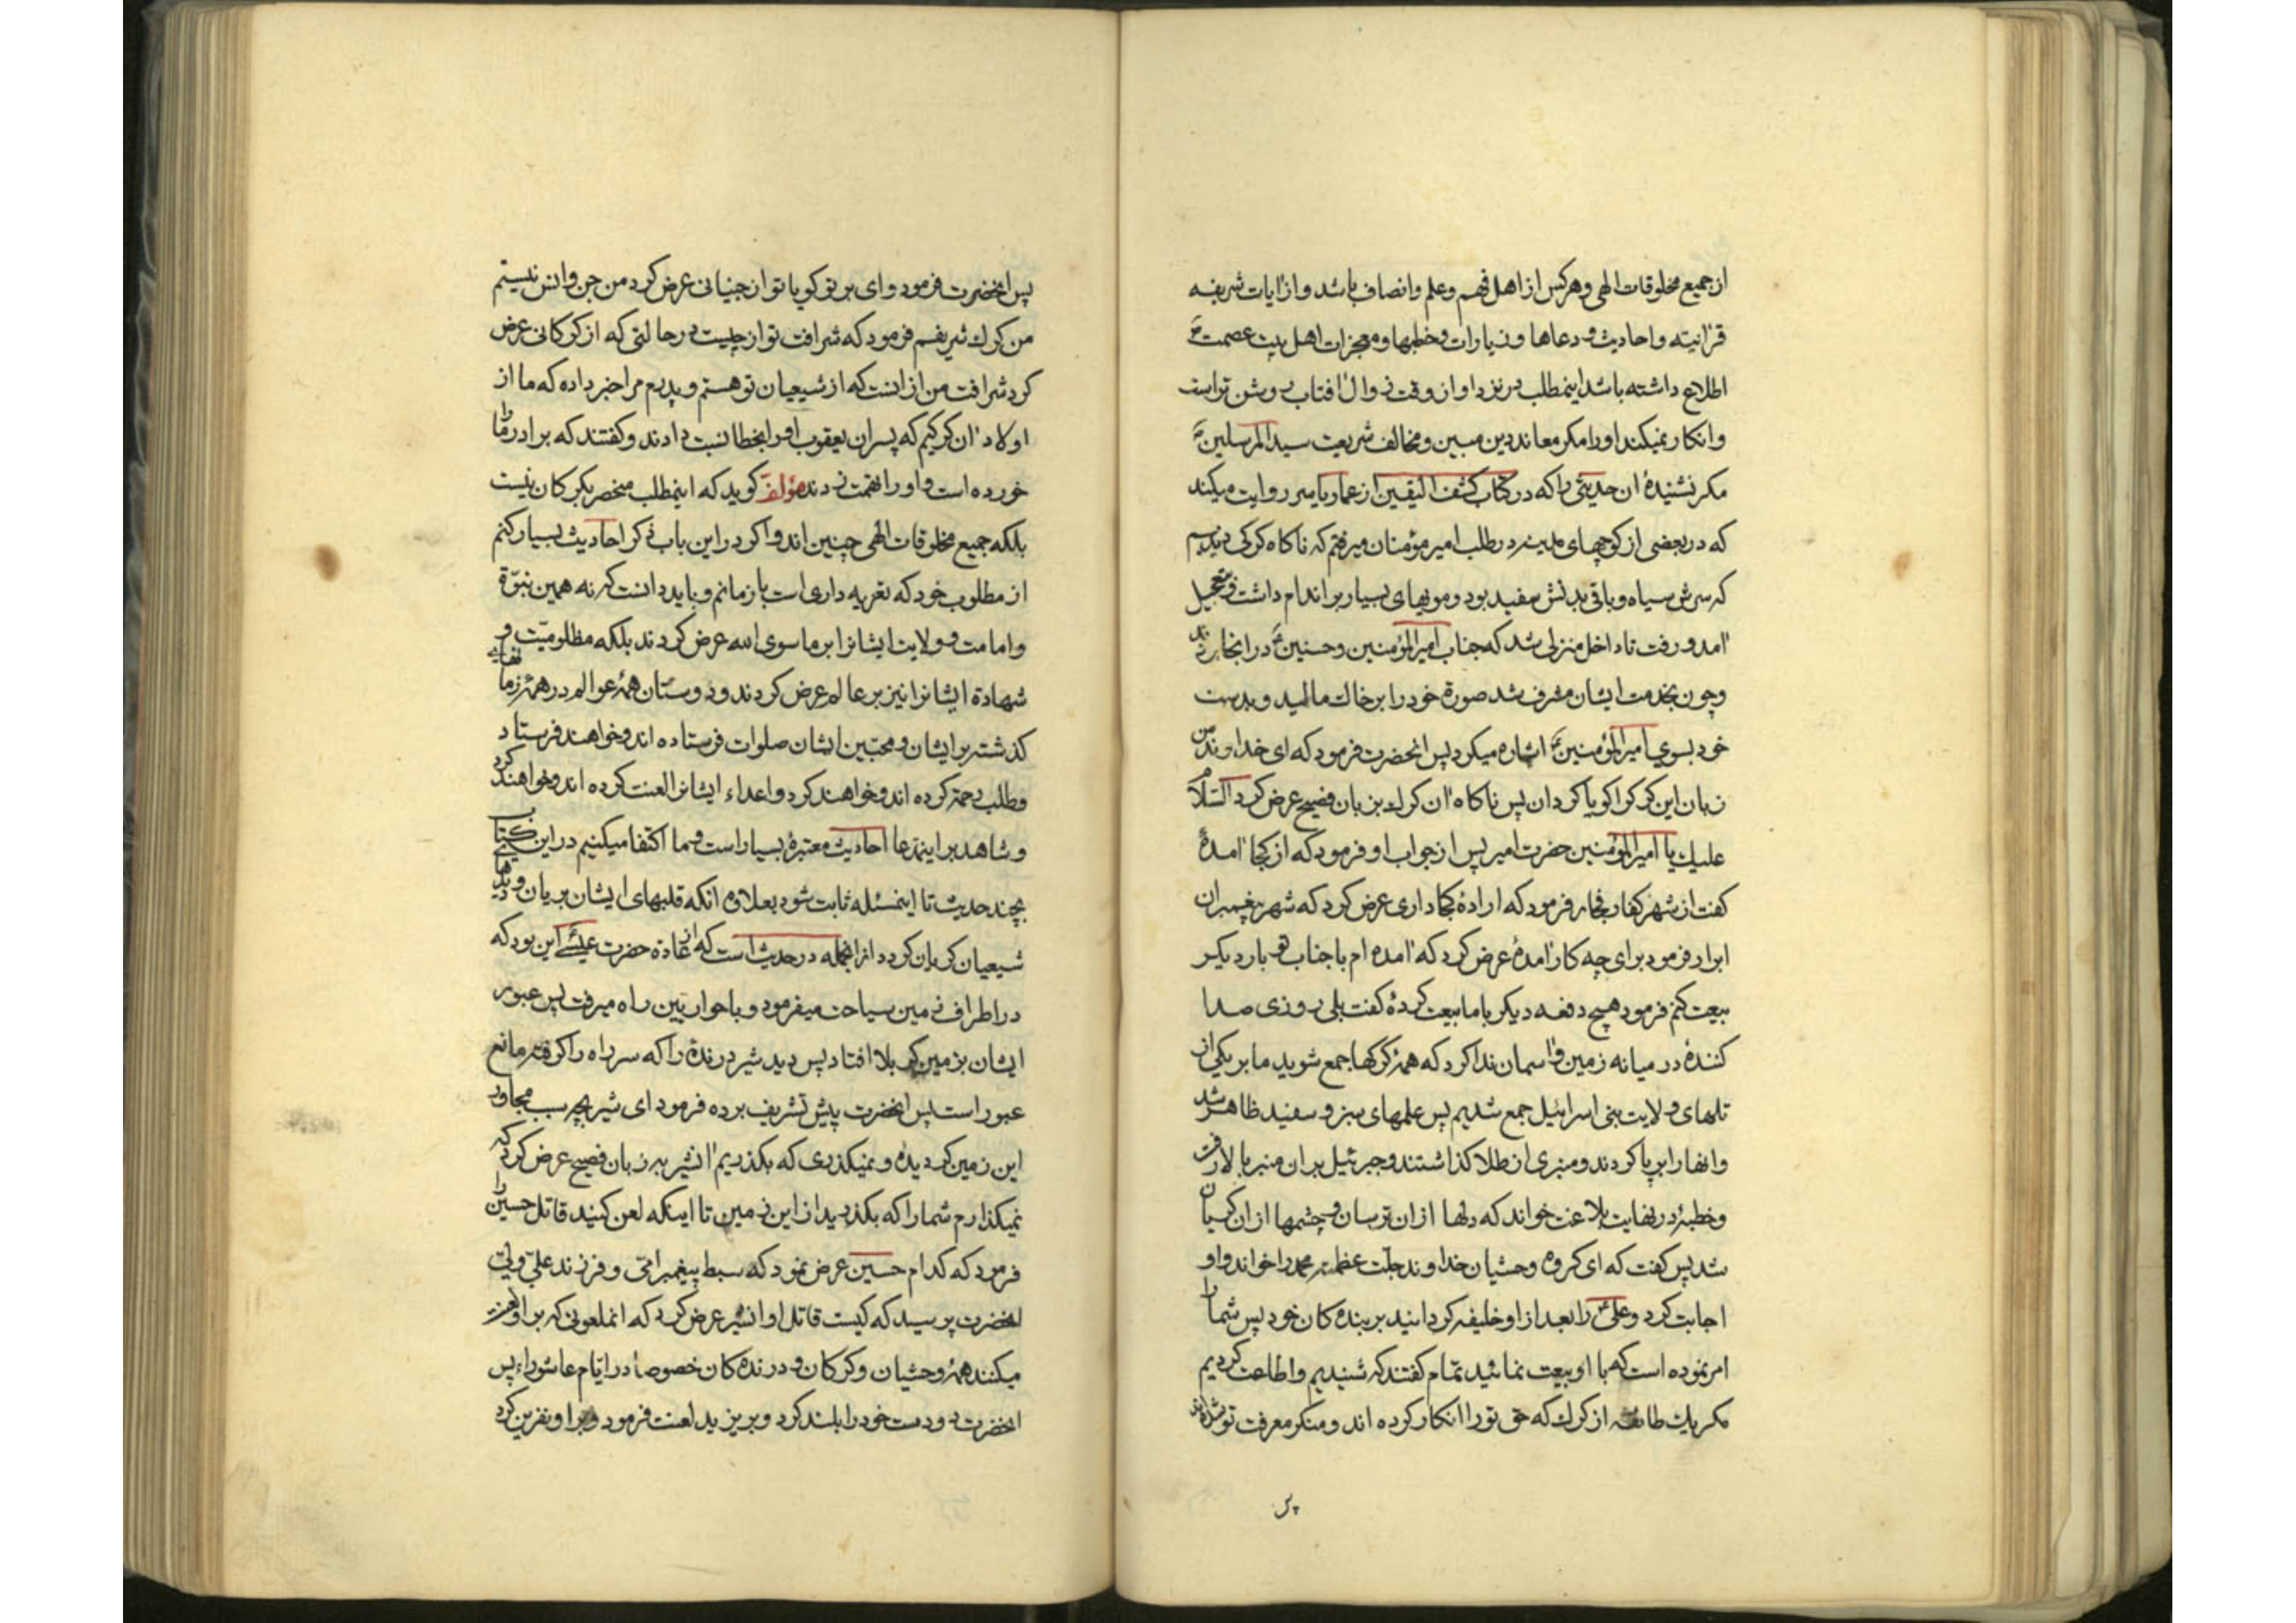 از جمیع مخلوقات الهی و هر کس از اهل فهم و علم و انصاف باشد و از آیات شریفه
قرآنیته و احادیث و دعاها و زیارات و خطبها و معجزات اهل بیت عصمت ع
اطلاع داشته باشد اینمطلب در نزد او از وقت زوال آفتاب روشن تر است
و انکار نمیکند اورا مکر معاند دین مبین و مخالف شریعت سید المرسلین ص
مکر نشنیدهٔ آن حدیثی را که در کتاب کشف الیقین از عمار یاسر روایت میکند
که در بعضی از کوچهای مدینه در طلب امیر مؤمنان میرفتم که ناکاه کرکی دیدم
که سرش سیاه و باقی بدنش سفید بود و مویهای بسیار بر اندام داشت و بتعجیل
آمد و رفت تا داخل منزلی شد که جناب امیرالمؤمنین و حسنین ع در آنجا بودند
و چون بخدمت ایشان مشرف شد صورة خود را بر خاک مالید و بدست
خود بسوی امیرالمؤمنین ع اشاره میکرد پس انحضرت فرمود که ای خداوند من
زبان این کرک را کویا کردان پس ناکاه آن کرک بزبان فصیح عرض کرد السّلام
علیک یا امیرالمؤمنین حضرت امیر پس از جواب او فرمود که از کجا آمدهٔ
کفت از شهر کفار و فجار فرمود که ارادهٔ کجا داری عرض کرد که شهر پیغمبران
ابرار فرمود برای چه کار آمدهٔ عرض کرد که آمده ام با جناب تو بار دیکر
بیعت کنم فرمود هیچ دفعه دیکر با ما بیعت کردهٔ کفت بلی روزی صدا
کنندهٔ در میانه زمین و آسمان ندا کرد که همهٔ کرکها جمع شوید ما بر یکی از
تلهای ولایت بنی اسرائیل جمع شدیم پس علمهای سبز و سفید ظاهر شد
و انها را بر پا کردند و منبری از طلا کذاشتند و جبرئیل بر ان منبر بالا رفت
و خطبهٔ در نهایت بلاغت خواند که دلها از ان ترسان و چشمها از ان کریان
شد پس کفت که ای کروه وحشیان خداوند جلّت عظمته محمد را خواند و او
اجابت کرد و علی ع را بعد از او خلیفه کردانید بر بنده کان خود پس شما را
امر نموده است که با او بیعت نمائید تمّام کفتند که شنیدیم و اطاعت کردیم
مکر یک طایفه از کرک که حق تو را انکار کرده اند و منکر معرفت تو شده اند
پس انحضرت فرمود وای بر تو کویا تو از جنیانی عرض کرد من جن و انس نیستم
من کرک شریفم فرمود که شرافت تو از چیست در حالتی که از کرکانی عرض
کرد شرافت من از انست که از شیعیان تو هستم و پدرم مرا خبر داده که ما از
اولاد آن کرکیم که پسران یعقوب او را بخطا نسبت دادند و کفتند که برادر ما را
خورده است و او را تهمت زدند مؤلف کوید که اینمطلب منحصر بکرکان نیست
بلکه جمیع مخلوقات الهی چنین اند و اکر در این باب ذکر احادیث بسیار کنم
از مطلوب خود که تعزیه داری است باز مانم و باید دانست که نه همین نبوّة
و امامت و ولایت ایشانرا بر ما سوی الله عرض کردند بلکه مظلومیّت و
شهادة ایشانرا نیز بر عالم عرض کردند و دوستان همهٔ عوالم در همهٔ زمانهای
کذشته بر ایشان و محبّین ایشان صلوات فرستاده اند و خواهند فرستاد
و طلب رحمة کرده اند و خواهند کرد و اعداء ایشانرا لعنت کرده اند و خواهند کرد
و شاهد بر اینمدّعا احادیث معتبرهٔ بسیار است و ما اکتفا میکنیم در این کتاب
بچند حدیث تا اینمسئله ثابت شود بعلاوه انکه قلبهای ایشان بریان و دیدهای
شیعیان کریان کردد از انجمله در حدیث است که از عادة حضرت عیسی این بود که
در اطراف زمین سیاحت میفرمود و با حواریّین راه میرفت پس عبور
ایشان بزمین کربلا افتاد پس دید شیر درندهٔ را که سر راه را کرفته مانع
عبور است پس انحضرت پیش تشریف برده فرمود ای شیر بچه سبب مجاور
این زمین کردیدهٔ و نمیکذاری که بکذریم آنشیر به زبان فصیح عرض کرد که
نمیکذارم شما را که بکذرید از این زمین تا اینکه لعن کنید قاتل حسین را
فرمود که کدام حسین عرض نمود که سبط پیغمبر امّی و فرزند علیّ ولیّ
انحضرت پرسید که کیست قاتل او انشیر عرض کرد که انملعونی که بر او لعن
میکنند همهٔ وحشیان و کرکان و درنده کان خصوصاً در ایّام عاشوراء پس
انحضرت دو دست خود را بلند کرد و بر یزید لعنت فرمود و بر او نفرین کرد